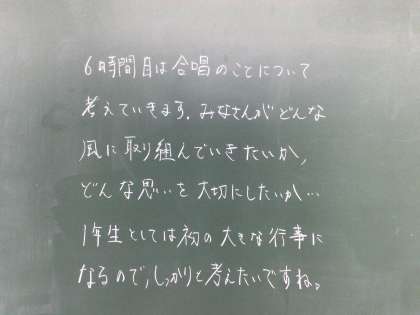 6時間目は合唱のことについて
考えていきます。みなさんがどんな
風に取り組んでいきたいか、
どんな思いを大切にしたいか…
1年生としては初の大きな行事に
なるので、しっかりと考えたいですね。